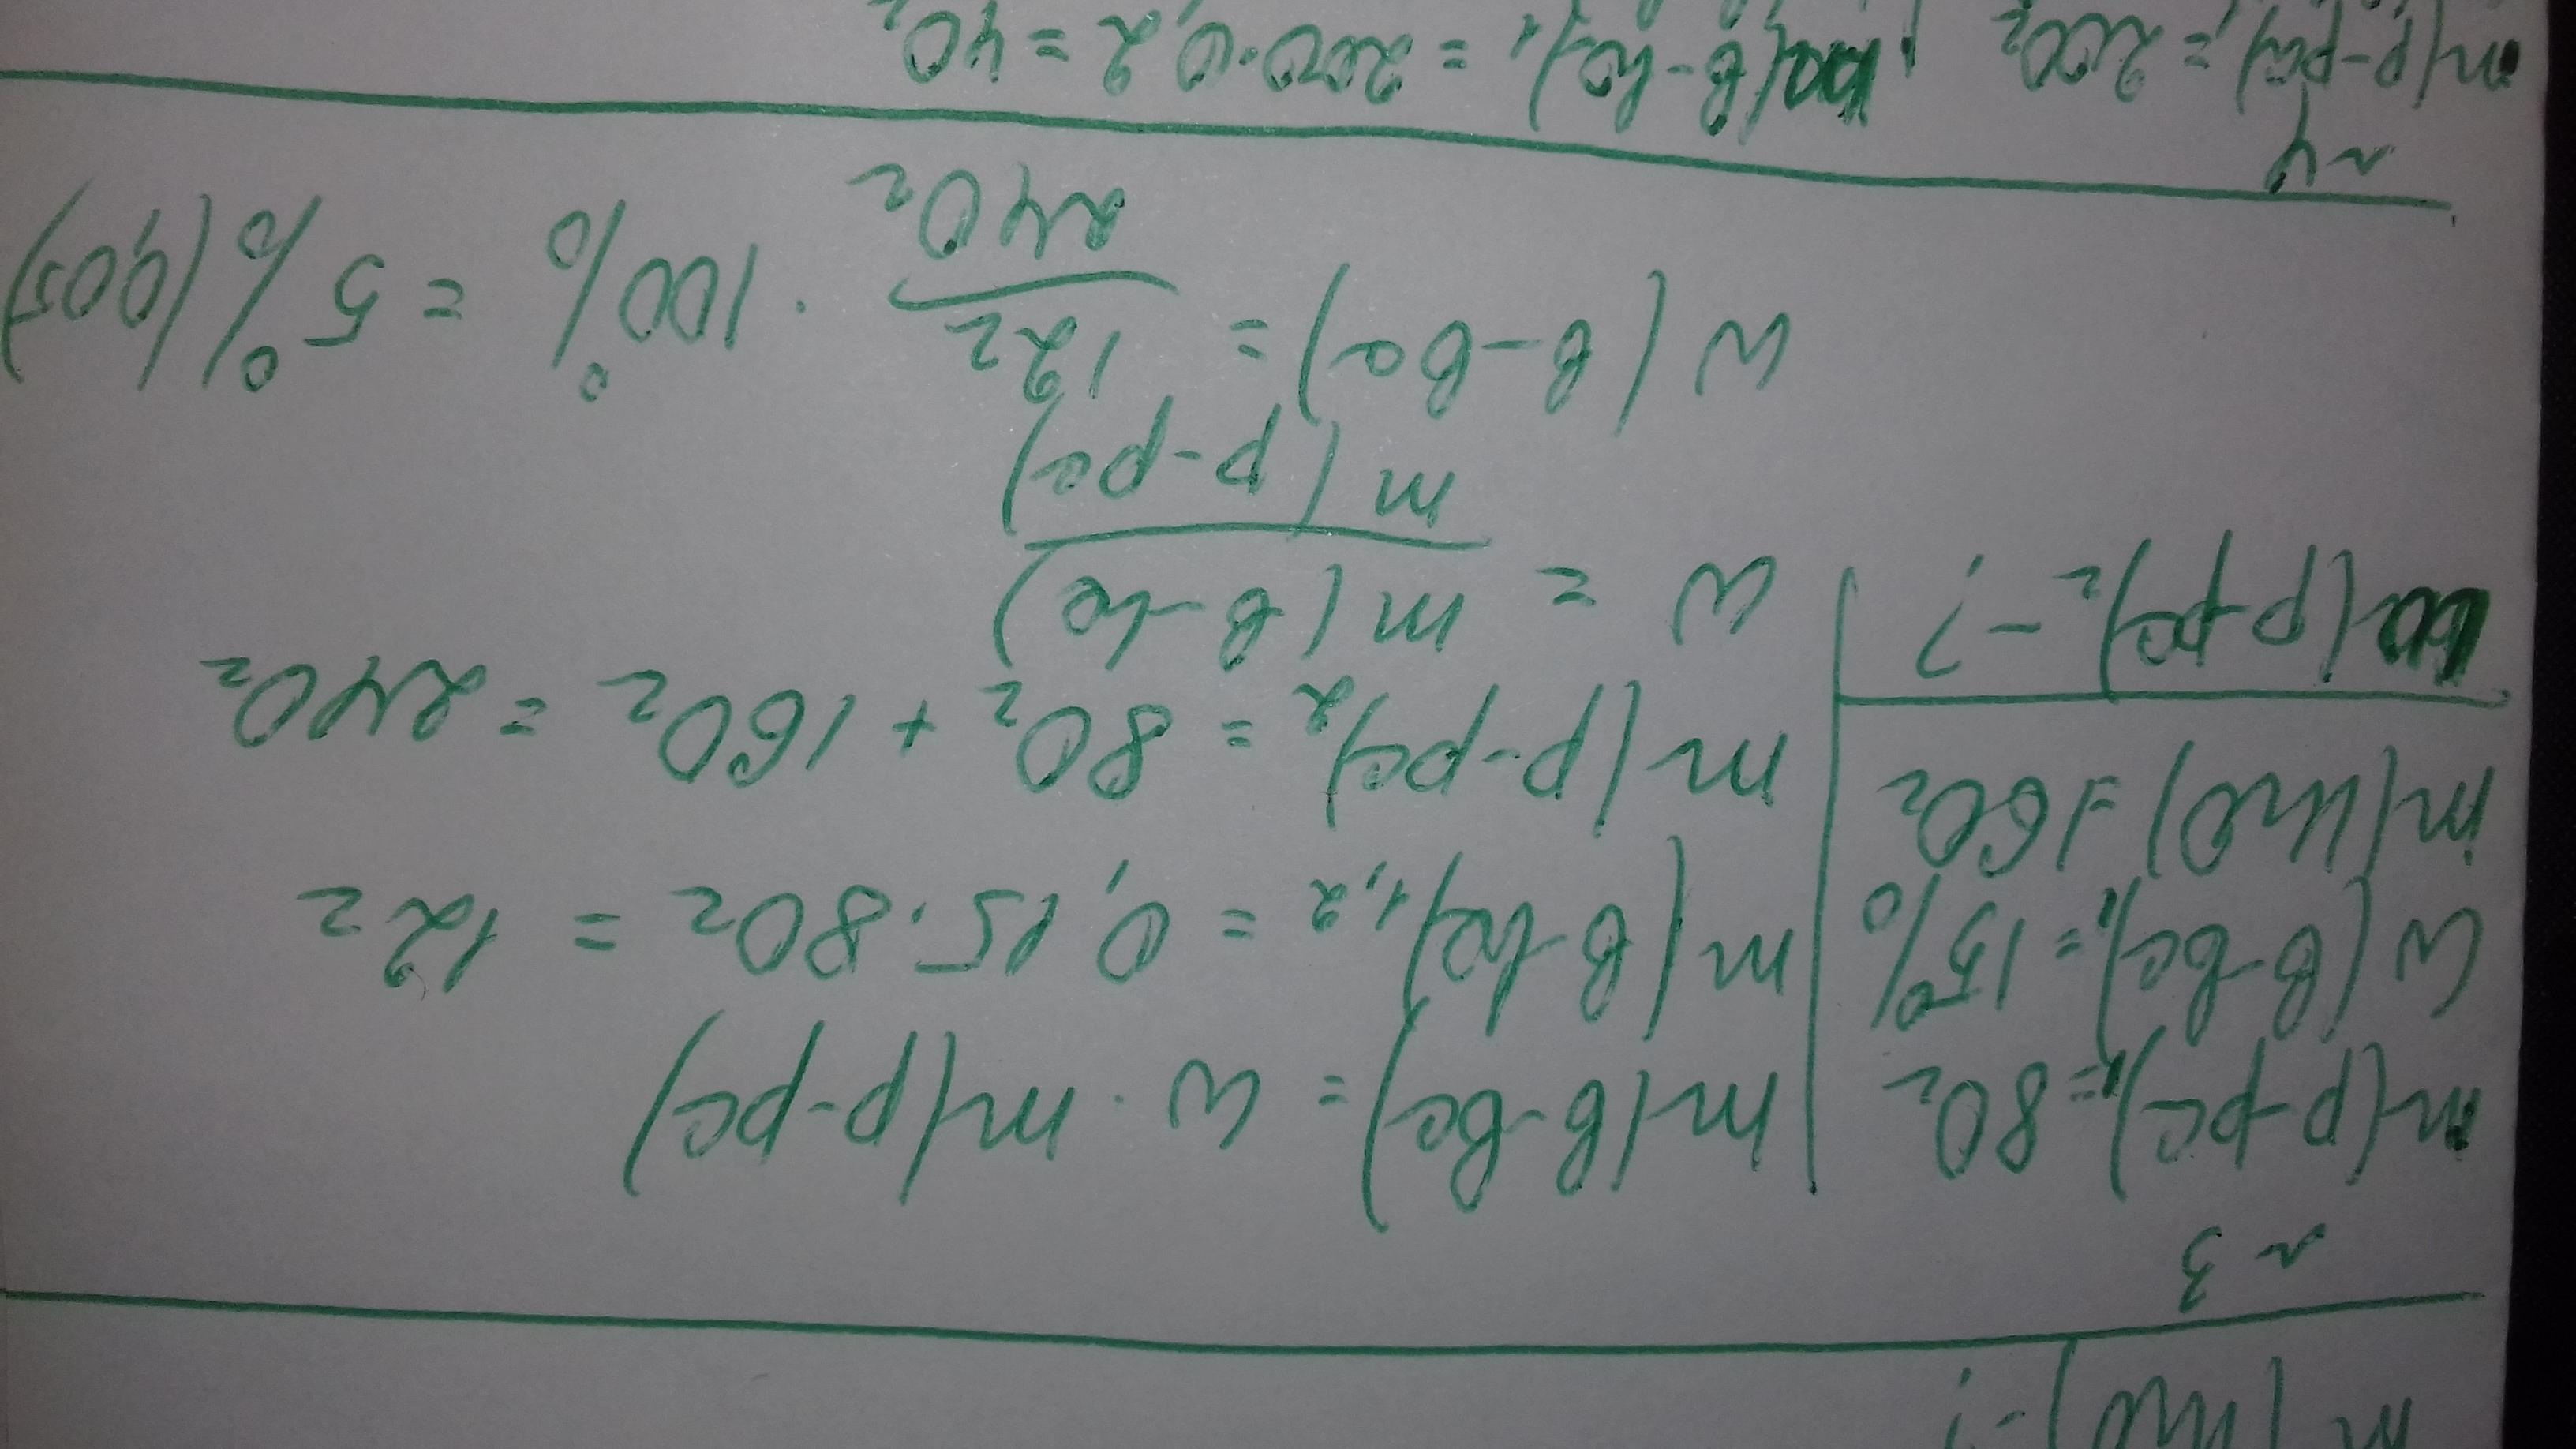 m(H₂O)-?
~3
m(р-ра)₁=80г
w(в-ва)₁=15%
m(H₂O)=160г
w(р-ра)₂-?
m(в-ва)=w·m(р-ра)
m(в-ва)₁,₂=0,15·80г=12г
m(р-ра)₂=80г+160г=240г
w=m(в-ва)/m(р-ра)
w(в-ва)=12г/240г·100%=5%(0,05)
~4
m(р-ра)₁=200г
m(в-ва)₁=200·0,2=40г